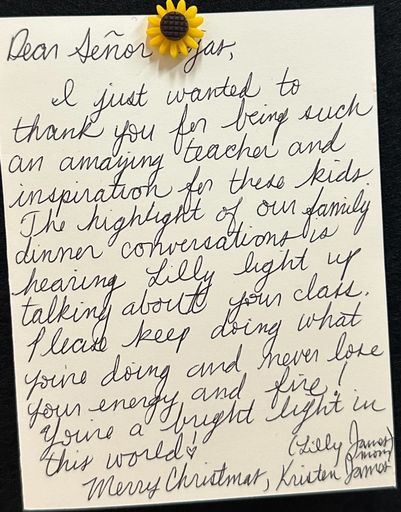 Dear Señor jas,
I just wanted to
thank you for being such
an amazing teacher and
inspiration for these kids.
The highlight of our family
dinner conversations is
hearing Lilly light up
talking about your class.
Please keep doing what
you're doing and never lose
your energy and fire!
You're a bright light in
this world!
(Lilly James'
mom)
Merry Christmas, Kristen James